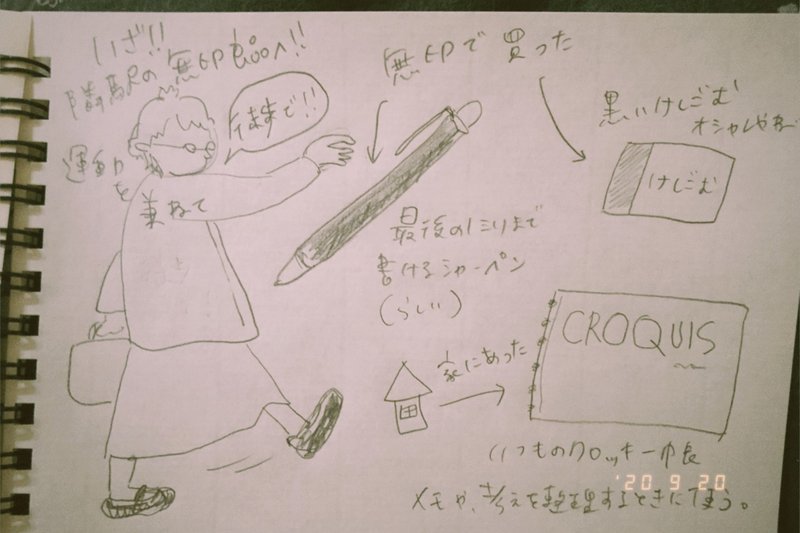 いざ!!
隣駅の無印へ!!
徒歩で!!
運動
を
兼ねて
無印で買った
黒いけしごむ
オシャレやね
けしごむ
最後の1ミリまで
書けるシャーペン
(らしい)
家にあった
CROQUIS
いつものクロッキー帳
メモや、考えを整理するときに使う。
'20 9 20